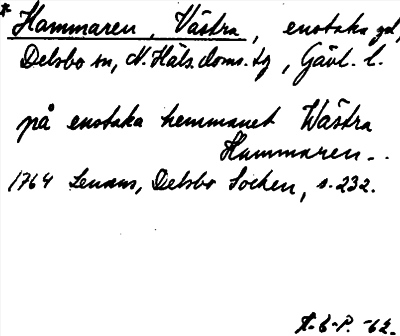 * Hammaren, Västra, enstaka gd,
Delsbo sn, N. Häls. doms. tg, Gävl. l.
på enstaka hemmanet Wästra
Hammaren..
1764 Lenæus, Delsbo Socken, s. 232.
A-E-P. -62.